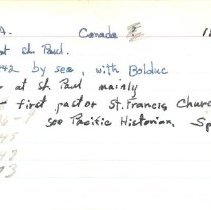 A. Canada
at St. Paul.
42 by sea, with Bolduc
at St Paul mainly
first pastor St. Francis Churc
see Pacific Historian, Sp